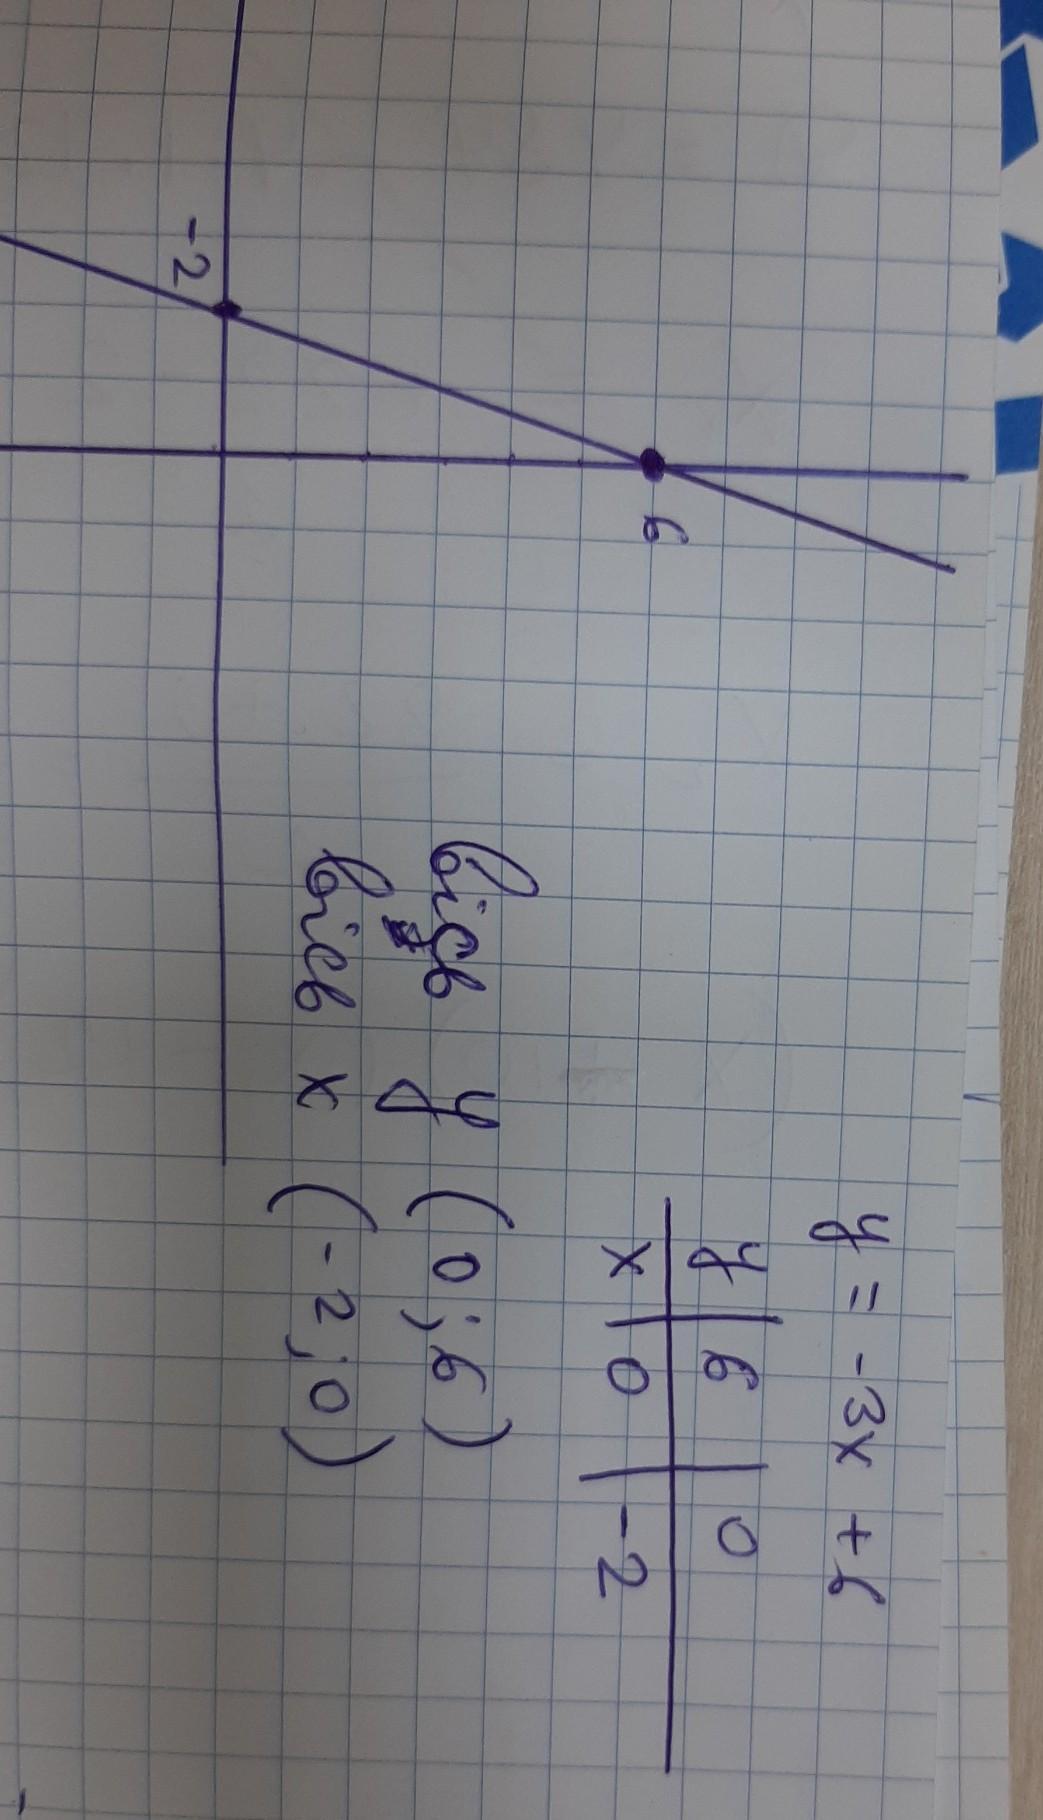 y = -3x + 6
y | 6 | 0
x | 0 | -2
вісь y (0; 6)
вісь x (-2; 0)
6
-2